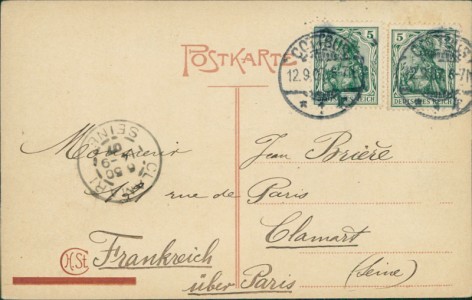 POSTKARTE
5
5
COTTBUS
12.9.07.6-7N
DEUTSCHES REICH
COTTBUS
DEUTSCHES REICH
CLAMART
SEINE
Monsieur Jean Brière
rue de Paris
Clamart
(Seine)
Frankreich
über Paris
H.St.